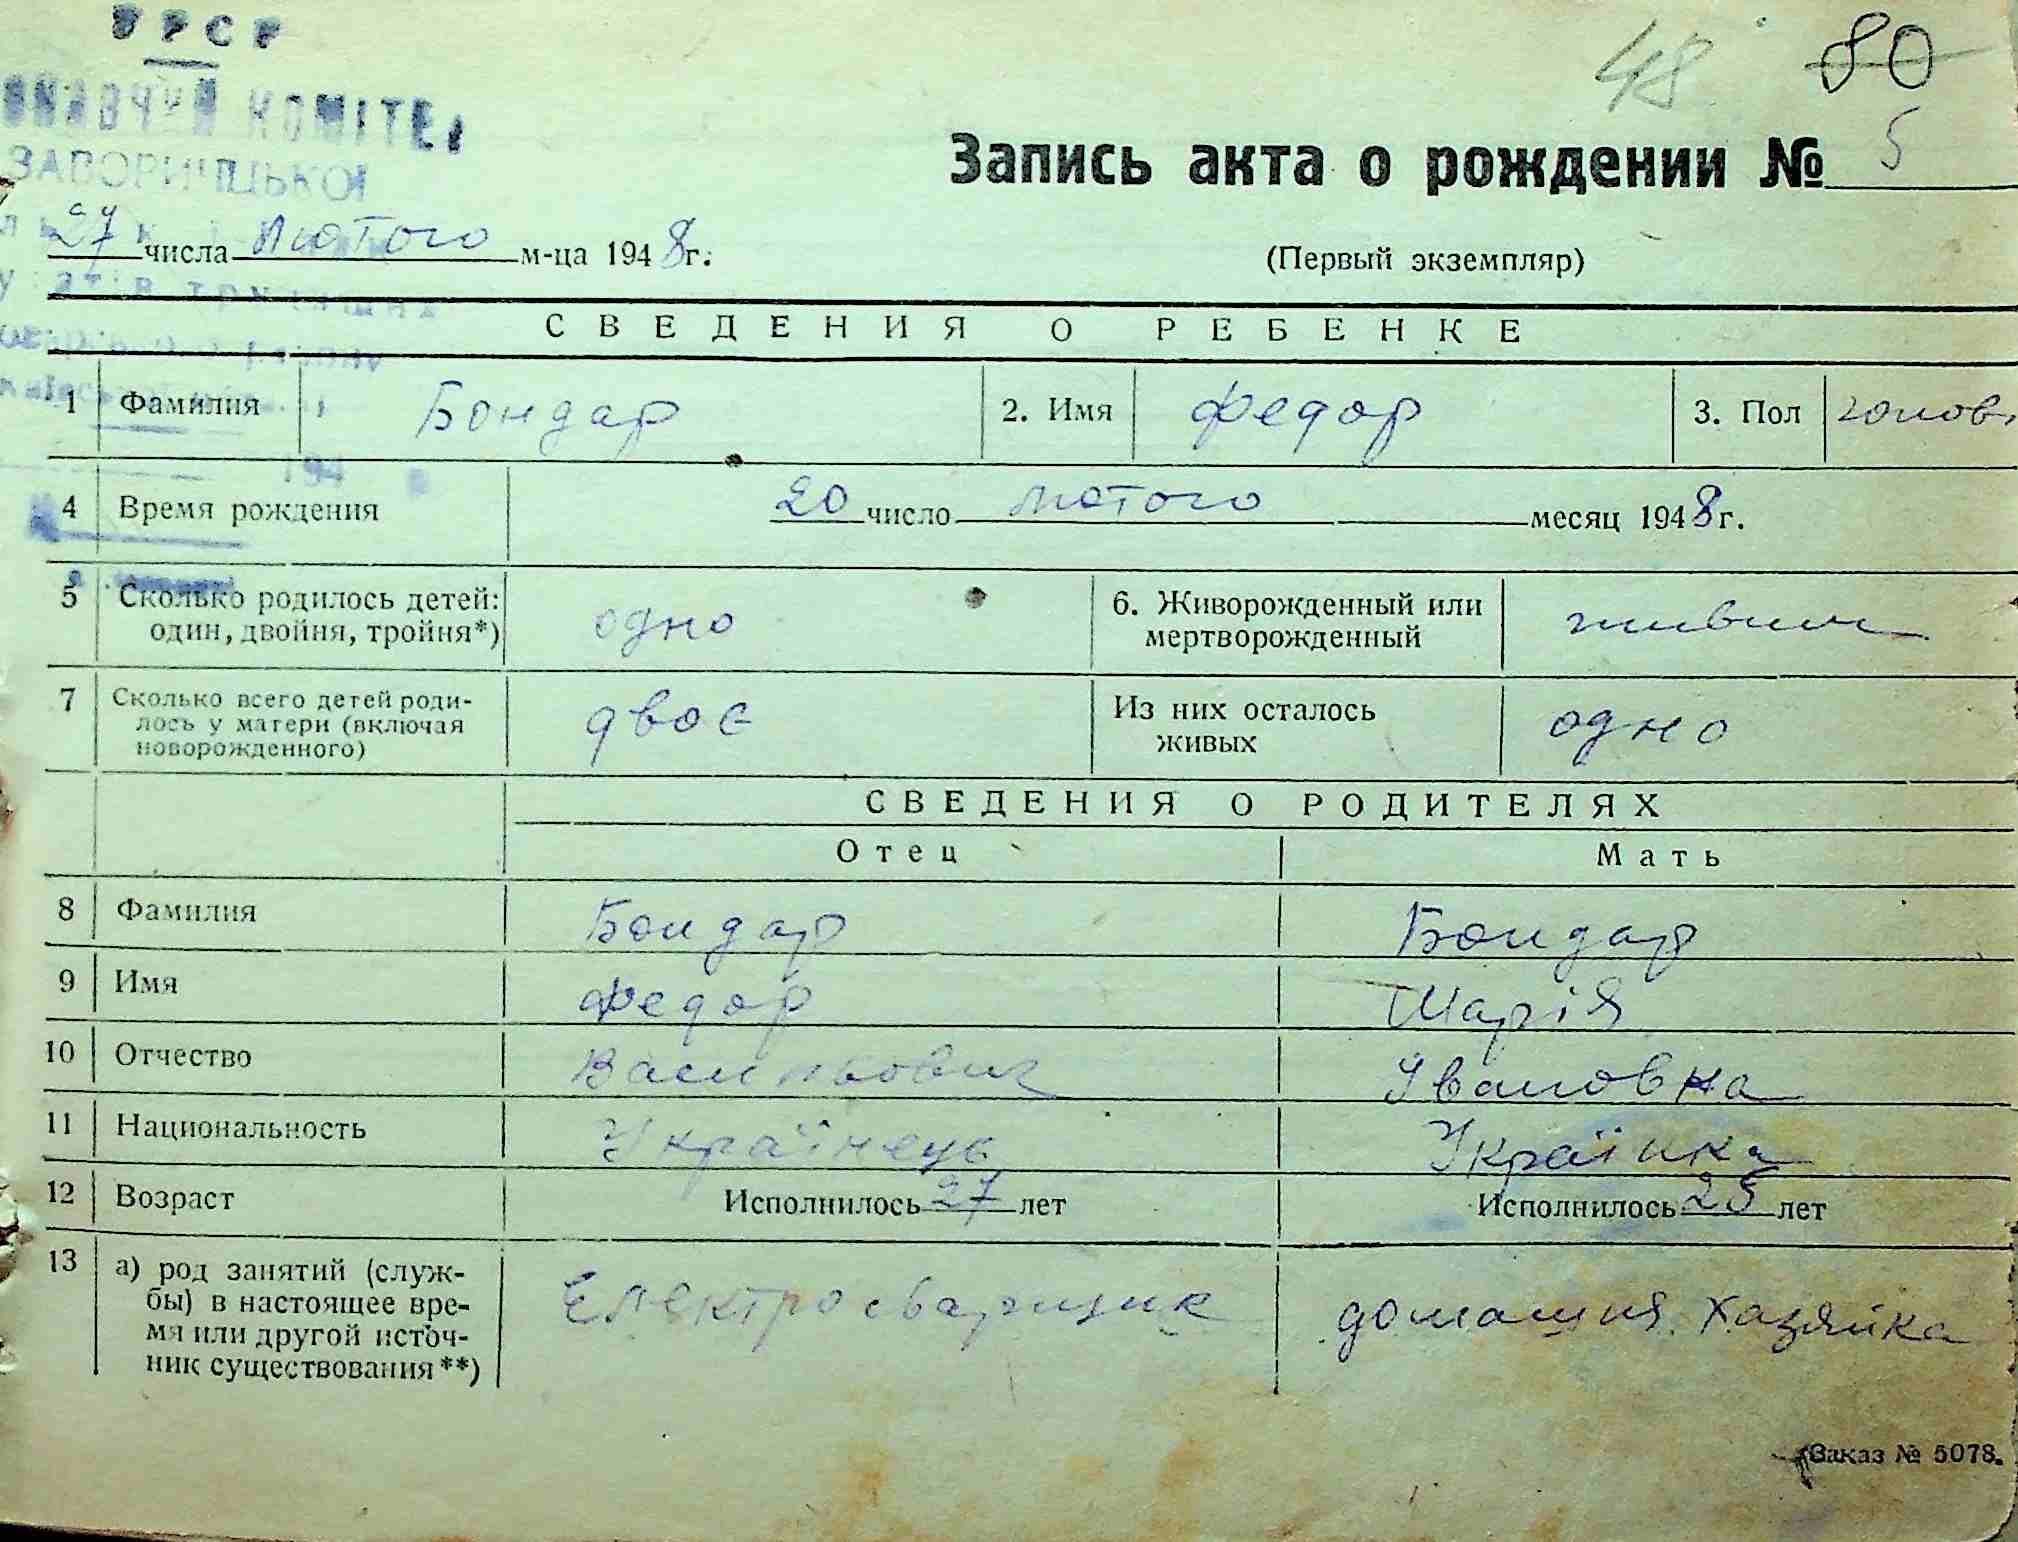 УРСР
48 80
ВИКОНАВЧИЙ КОМІТЕТ
ЗАВОРИЦЬКОЇ
Запись акта о рождении № 5
27 числа лютого м-ца 1948 г.
(Первый экземпляр)
СВЕДЕНИЯ О РЕБЕНКЕ
1 Фамилия Бондар 2. Имя Федор 3. Пол чолов.
194
4 Время рождения 20 число лютого месяц 1948 г.
5 Сколько родилось детей: один, двойня, тройня*) одно 6. Живорожденный или мертворожденный живим
7 Сколько всего детей родилось у матери (включая новорожденного) двоє Из них осталось живых одно
СВЕДЕНИЯ О РОДИТЕЛЯХ
Отец Мать
8 Фамилия Бондар Бондар
9 Имя Федор Марія
10 Отчество Васильович Івановна
11 Национальность Українець Українка
12 Возраст Исполнилось 27 лет Исполнилось 25 лет
13 а) род занятий (служ-
бы) в настоящее вре-
мя или другой источ-
ник существования**)
Електросварщик домашня хазяйка
Заказ № 5078.